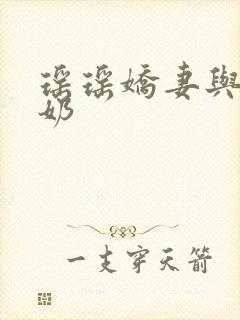 瑶瑶嬌妻與
奶
一支穿天箭